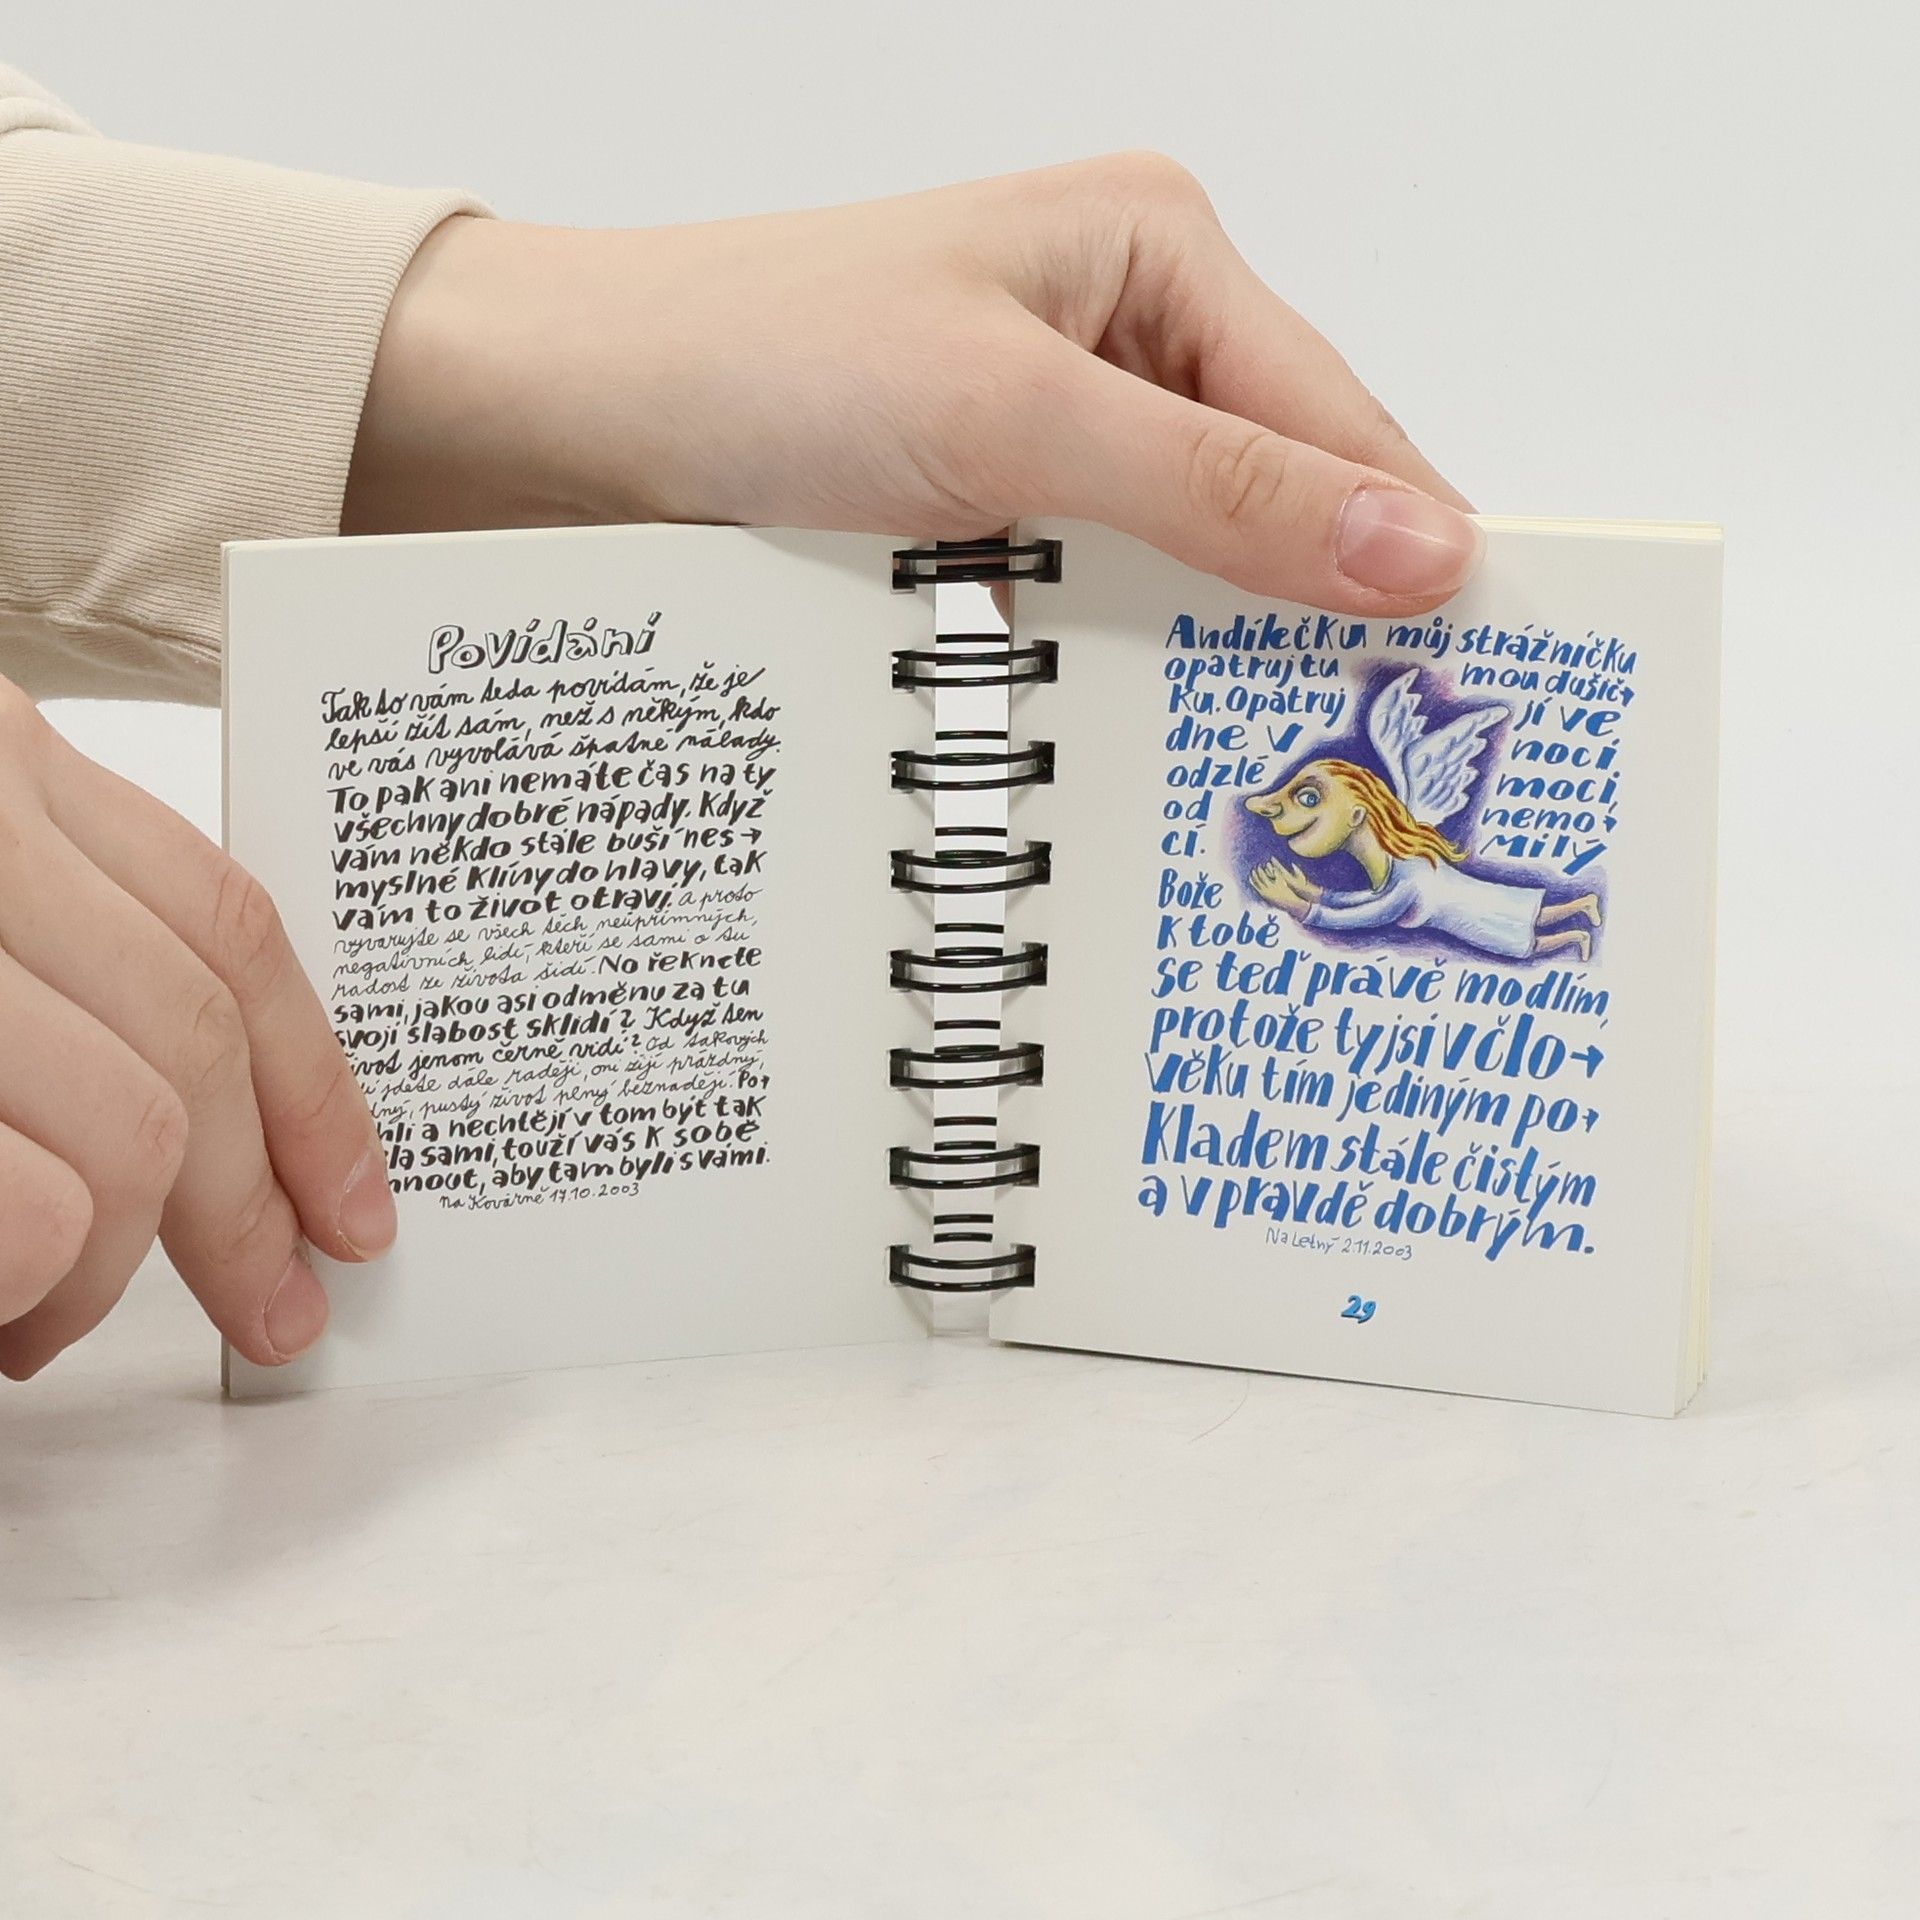 Povídání
Tak to vám teda povídám, že je
lepší žít sám, než s někým, kdo
ve vás vyvolává špatné nálady.
To pak ani nemáte čas na ty
všechny dobré nápady. Když
vám někdo stále buší nes→
myslné klíny do hlavy, tak
vám to život otráví. A proto
vyvarujte se všech těch neupřímných,
negativních lidí, kteří se sami o tu,
radost ze života šidí. No řeknete
sami, jakou asi odměnu za tu
svojí slabost sklidí? Když ten
život jenom černě vidí? Od takových
jděte dále raději, oni žijí prázdný,
pustý život plný beznadějí. Po→
a nechtějí v tom být tak
sami, touží vás k sobě
aby tam byli s vámi.
Na Kovárně 17.10.2003
Andílečku můj strážníčku
opatruj tu mou dušič→
ku. Opatruj jí ve
dne v nocí
odzlé moci,
od nemo→
cí. Milý
Bože
K tobě
se teď právě modlím,
protože ty jsi v člo→
věku tím jediným po→
Kladem stále čistým
a v pravdě dobrým.
Na Letný 2.11.2003
29